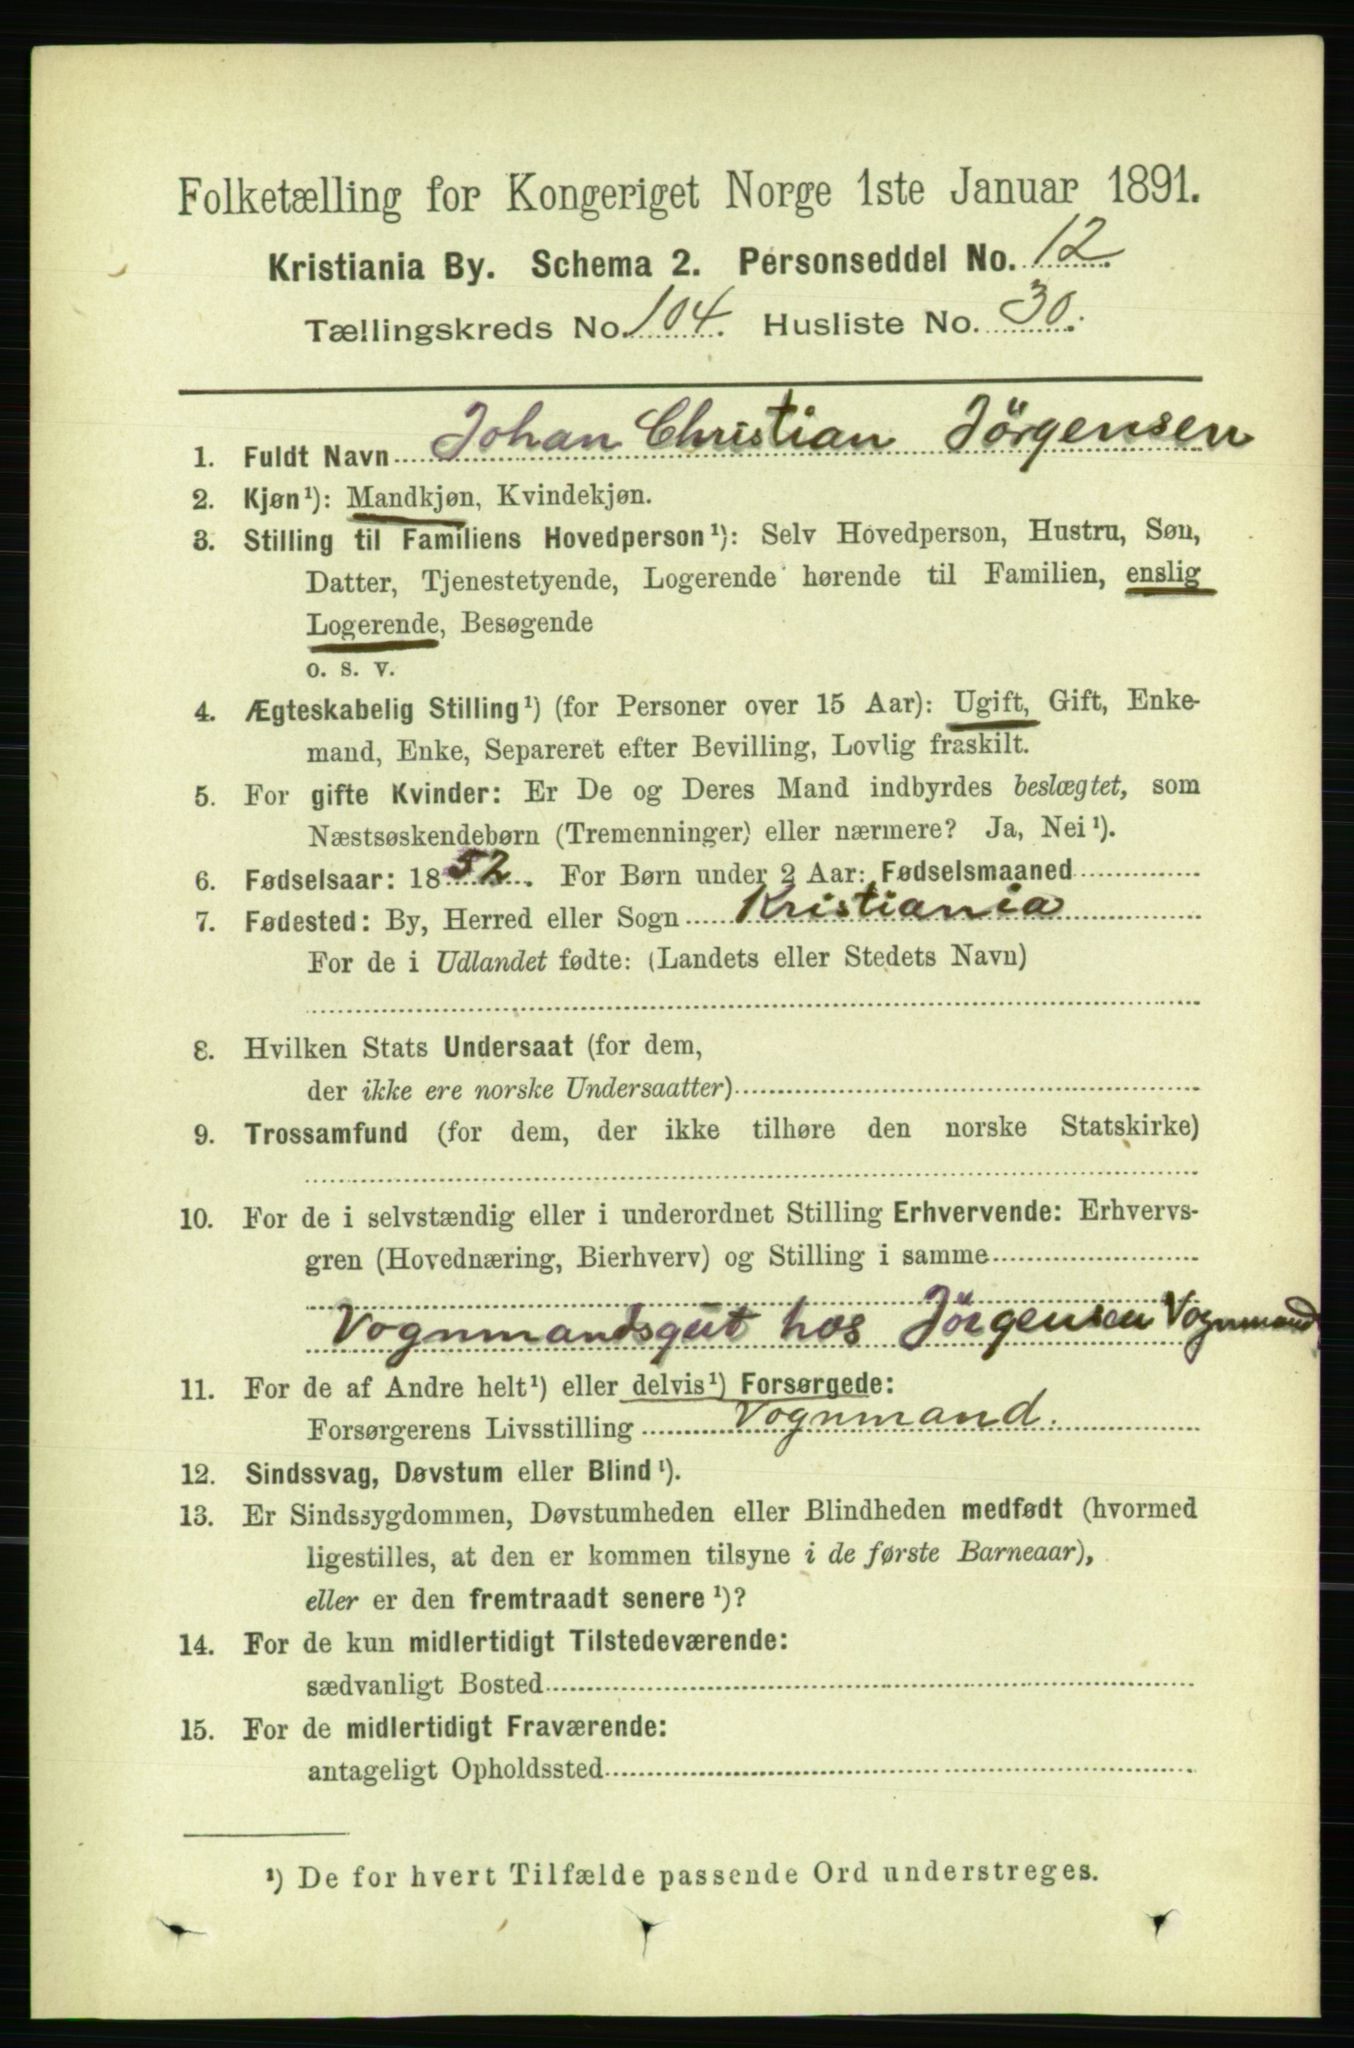 Folketælling for Kongeriget Norge 1ste Januar 1891.
Kristiania By. Schema 2. Personseddel No. 12.
Tællingskreds No. 104. Husliste No. 30.
1. Fuldt Navn Johan Christian Jörgensen
2. Kjøn¹): Mandkjøn, Kvindekjøn.
3. Stilling til Familiens Hovedperson¹): Selv Hovedperson, Hustru, Søn,
Datter, Tjenestetyende, Logerende hørende til Familien, enslig
Logerende, Besøgende
o. s. v.
4. Ægteskabelig Stilling¹) (for Personer over 15 Aar): Ugift, Gift, Enke-
mand, Enke, Separeret efter Bevilling, Lovlig fraskilt.
5. For gifte Kvinder: Er De og Deres Mand indbyrdes beslægtet, som
Næstsøskendebørn (Tremenninger) eller nærmere? Ja, Nei¹).
6. Fødselsaar: 1852. For Børn under 2 Aar: Fødselsmaaned
7. Fødested: By, Herred eller Sogn Kristiania
For de i Udlandet fødte: (Landets eller Stedets Navn)
8. Hvilken Stats Undersaat (for dem,
der ikke ere norske Undersaatter)
9. Trossamfund (for dem, der ikke tilhøre den norske Statskirke)
10. For de i selvstændig eller i underordnet Stilling Erhvervende: Erhvervs-
gren (Hovednæring, Bierhverv) og Stilling i samme
Vognmandsgut hos Jörgensen Vognmand
11. For de af Andre helt¹) eller delvis¹) Forsørgede:
Forsørgerens Livsstilling Vognmand.
12. Sindssvag, Døvstum eller Blind¹).
13. Er Sindssygdommen, Døvstumheden eller Blindheden medfødt (hvormed
ligestilles, at den er kommen tilsyne i de første Barneaar),
eller er den fremtraadt senere¹)?
14. For de kun midlertidigt Tilstedeværende:
sædvanligt Bosted
15. For de midlertidigt Fraværende:
antageligt Opholdssted
¹) De for hvert Tilfælde passende Ord understreges.